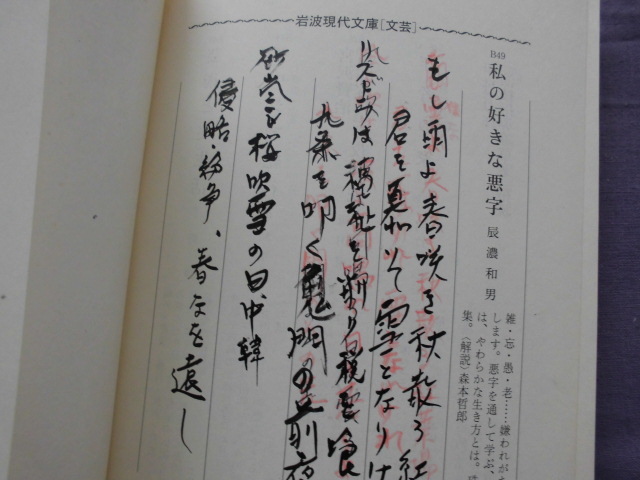 岩波現代文庫[文芸]
B49 私の好きな悪字 辰濃和男
雑・忘・愚・老……嫌われが
します。悪字を通して学ぶ、
は、やわらかな生き方とは。
集。〈解説〉森本哲郎
もし雨よ春咲き秋散る紅
君を真似いて雪となりけ
リストラは福祉を 税
九条を叩く鬼門の前夜
砂嵐で桜吹雪の日中韓
侵略・紛争、春なを遠し